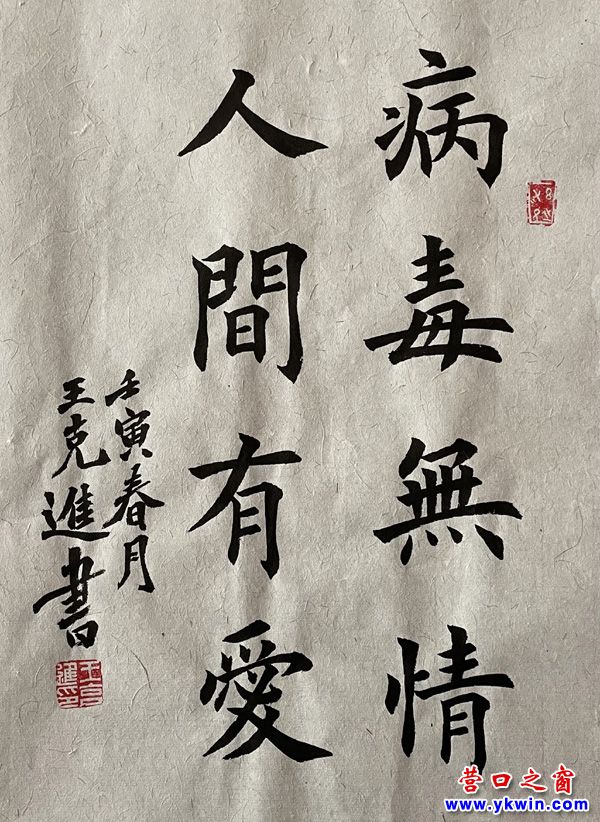 病毒無情
人間有愛
壬寅春月
王克進書
营口之窗
www.ykwin.com